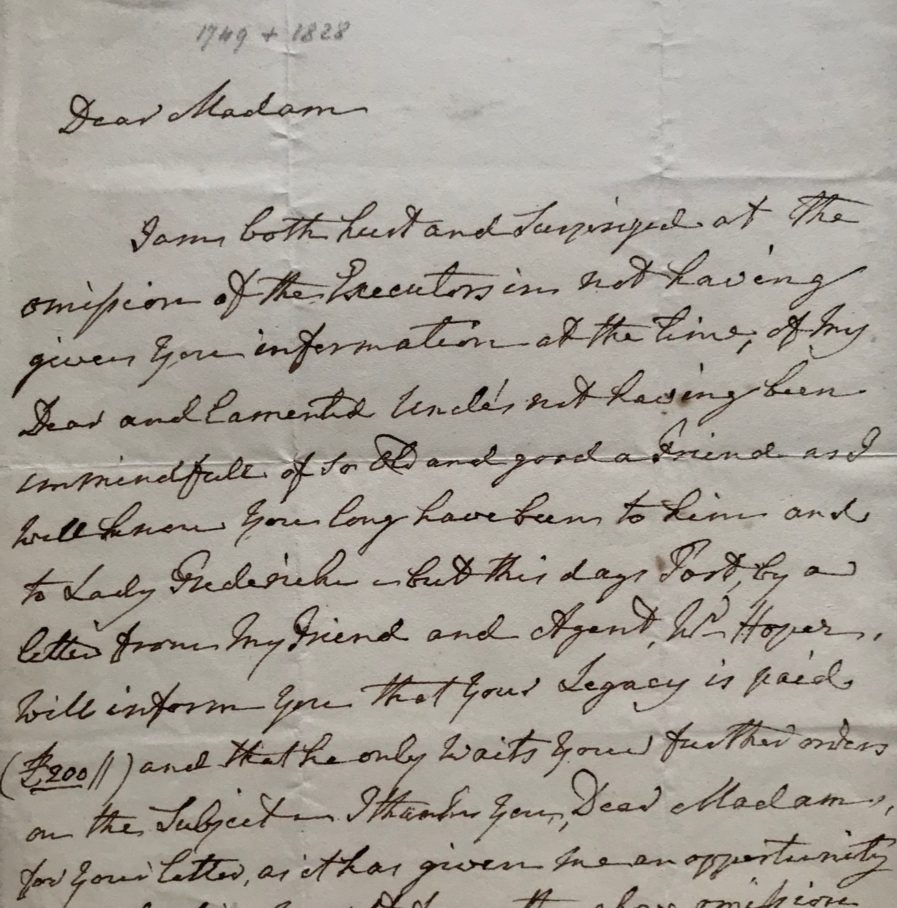 1749 + 1828
Dear Madam
I am both hurt and Surprized at the
omission of the Executors in not having
given You information at the time, of My
Dear and lamented Uncle's not having been
unmindfull of So Old and good a Friend as I
Well know You long have been to him and
to Lady Frederick - but this days Post, by a
letter from My Friend and Agent, Hoper,
Will inform You that Your Legacy is paid
(£200//) and that he only Waits Your further orders
on the Subject - I thank You, Dear Madam,
for Your letter, as it has given me an opportunity
the above omission